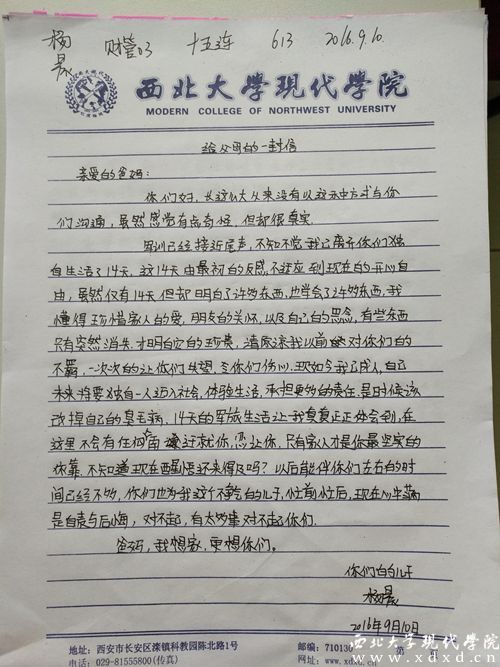 杨晨 财营03 十五连 613 2016.9.10
西北大學現代學院
MODERN COLLEGE OF NORTHWEST UNIVERSITY
给父母的一封信
亲爱的爸妈：
你们好，长这么大从来没有以这种方式与你
们沟通，虽然感觉有点奇怪，但却很真实
军训已经接近尾声，不知不觉我已离开你们独
自生活了14天，这14天由最初的反感，不适应到现在的开心自
由，虽然仅有14天但却明白了许多东西，也学会了许多东西，我
懂得珍惜家人的爱，朋友的关怀，以及自己的思念，有些东西
只有突然消失，才明白它的珍贵，请原谅我以前对你们的
不羁，一次次的让你们失望，令你们伤心，现如今我已成人，自己
未来将要独自一人迈入社会，体验生活，承担更多的责任，是时候该
改掉自己的臭毛病，14天的军旅生活让我真真正正体会到，在
这里不会有任何人迁就你，惯让你，只有家人才是你最坚实的
依靠，不知道现在醒悟还来得及吗？以后能伴你们左右的时
间已经不多，你们也为我这个不孝的儿子，忙前忙后，现在心中满
是自责与后悔，对不起，有太多事对不起你们.
爸妈，我想家，更想你们。
你们的儿子
杨晨
2016年9月10日
地址：西安市长安区滦镇科教园陈北路1号
邮编：710130
电话：029-81555800(传真)
西北大学现代学院
www.xdxd.cn